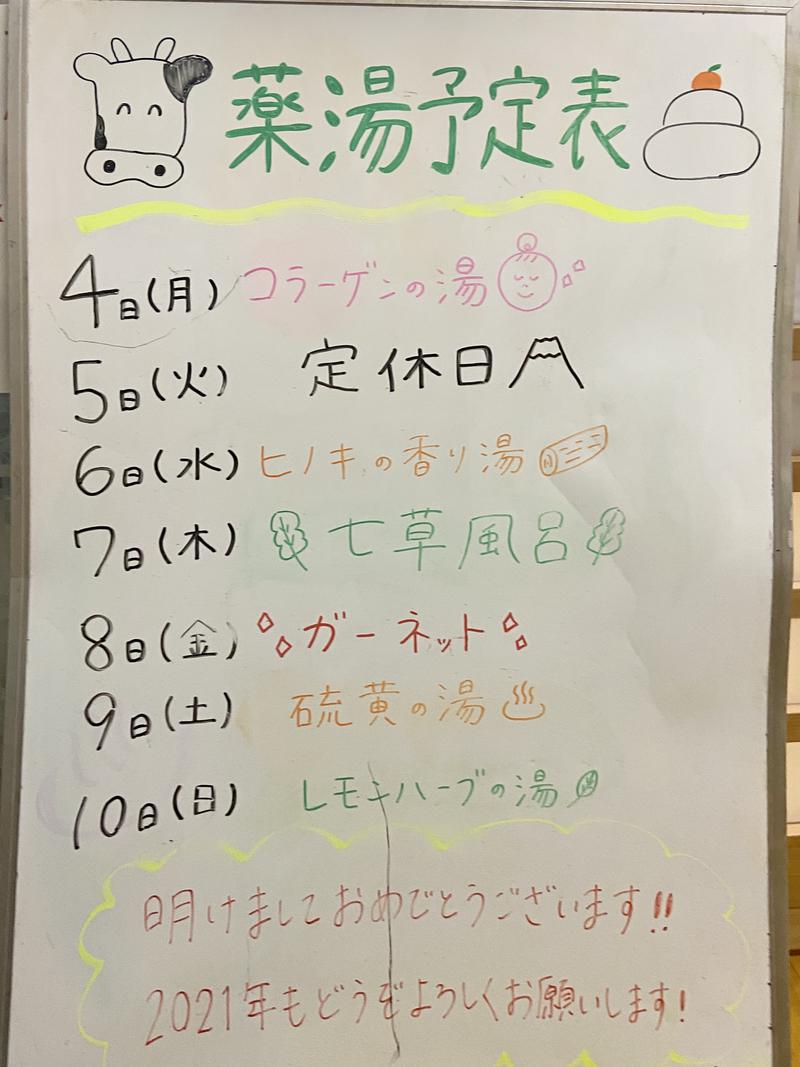 薬湯予定表
4日(月) コラーゲンの湯
5日(火) 定休日
6日(水) ヒノキの香り湯
7日(木) 七草風呂
8日(金) ガーネット
9日(土) 硫黄の湯
10日(日) レモンハーブの湯
明けましておめでとうございます!!
2021年もどうぞよろしくお願いします!